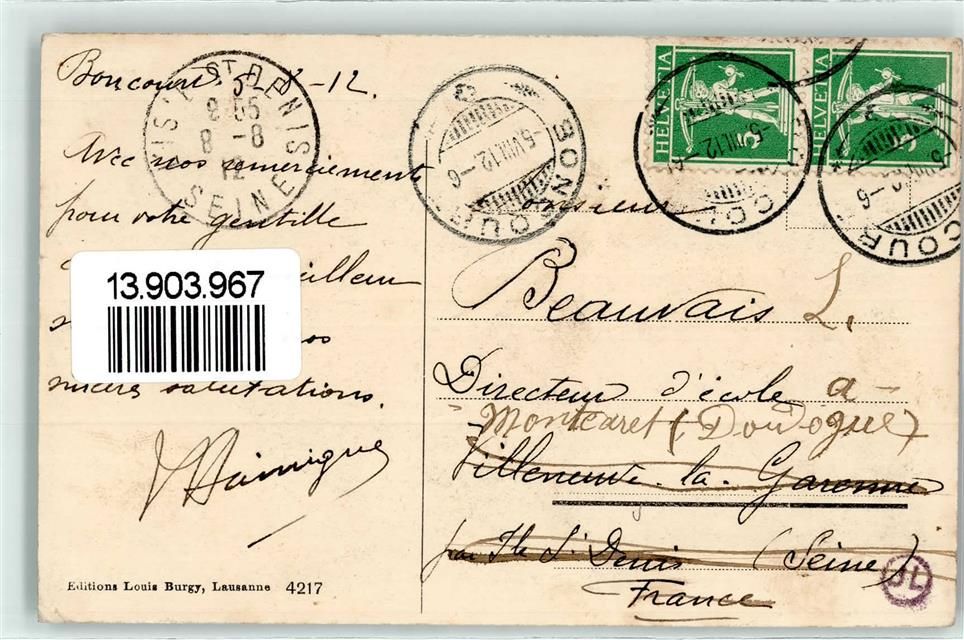 Boncourt 5-8-12.
Avec nos remerciements
pour votre gentille
13.903.967
sincères salutations.
Editions Louis Burgy, Lausanne 4217
ISLE ST DENIS
SEINE
8 -8
12
BONCOURT
5.VIII.12-6
HELVETIA
5
HELVETIA
5
BONCOURT
5.VIII.12-6
COUR
Monsieur
Beauvais L.
Directeur d'école à
Montcaret (Dordogne)
Villeneuve-la-Garenne
par Ile St Denis (Seine)
France